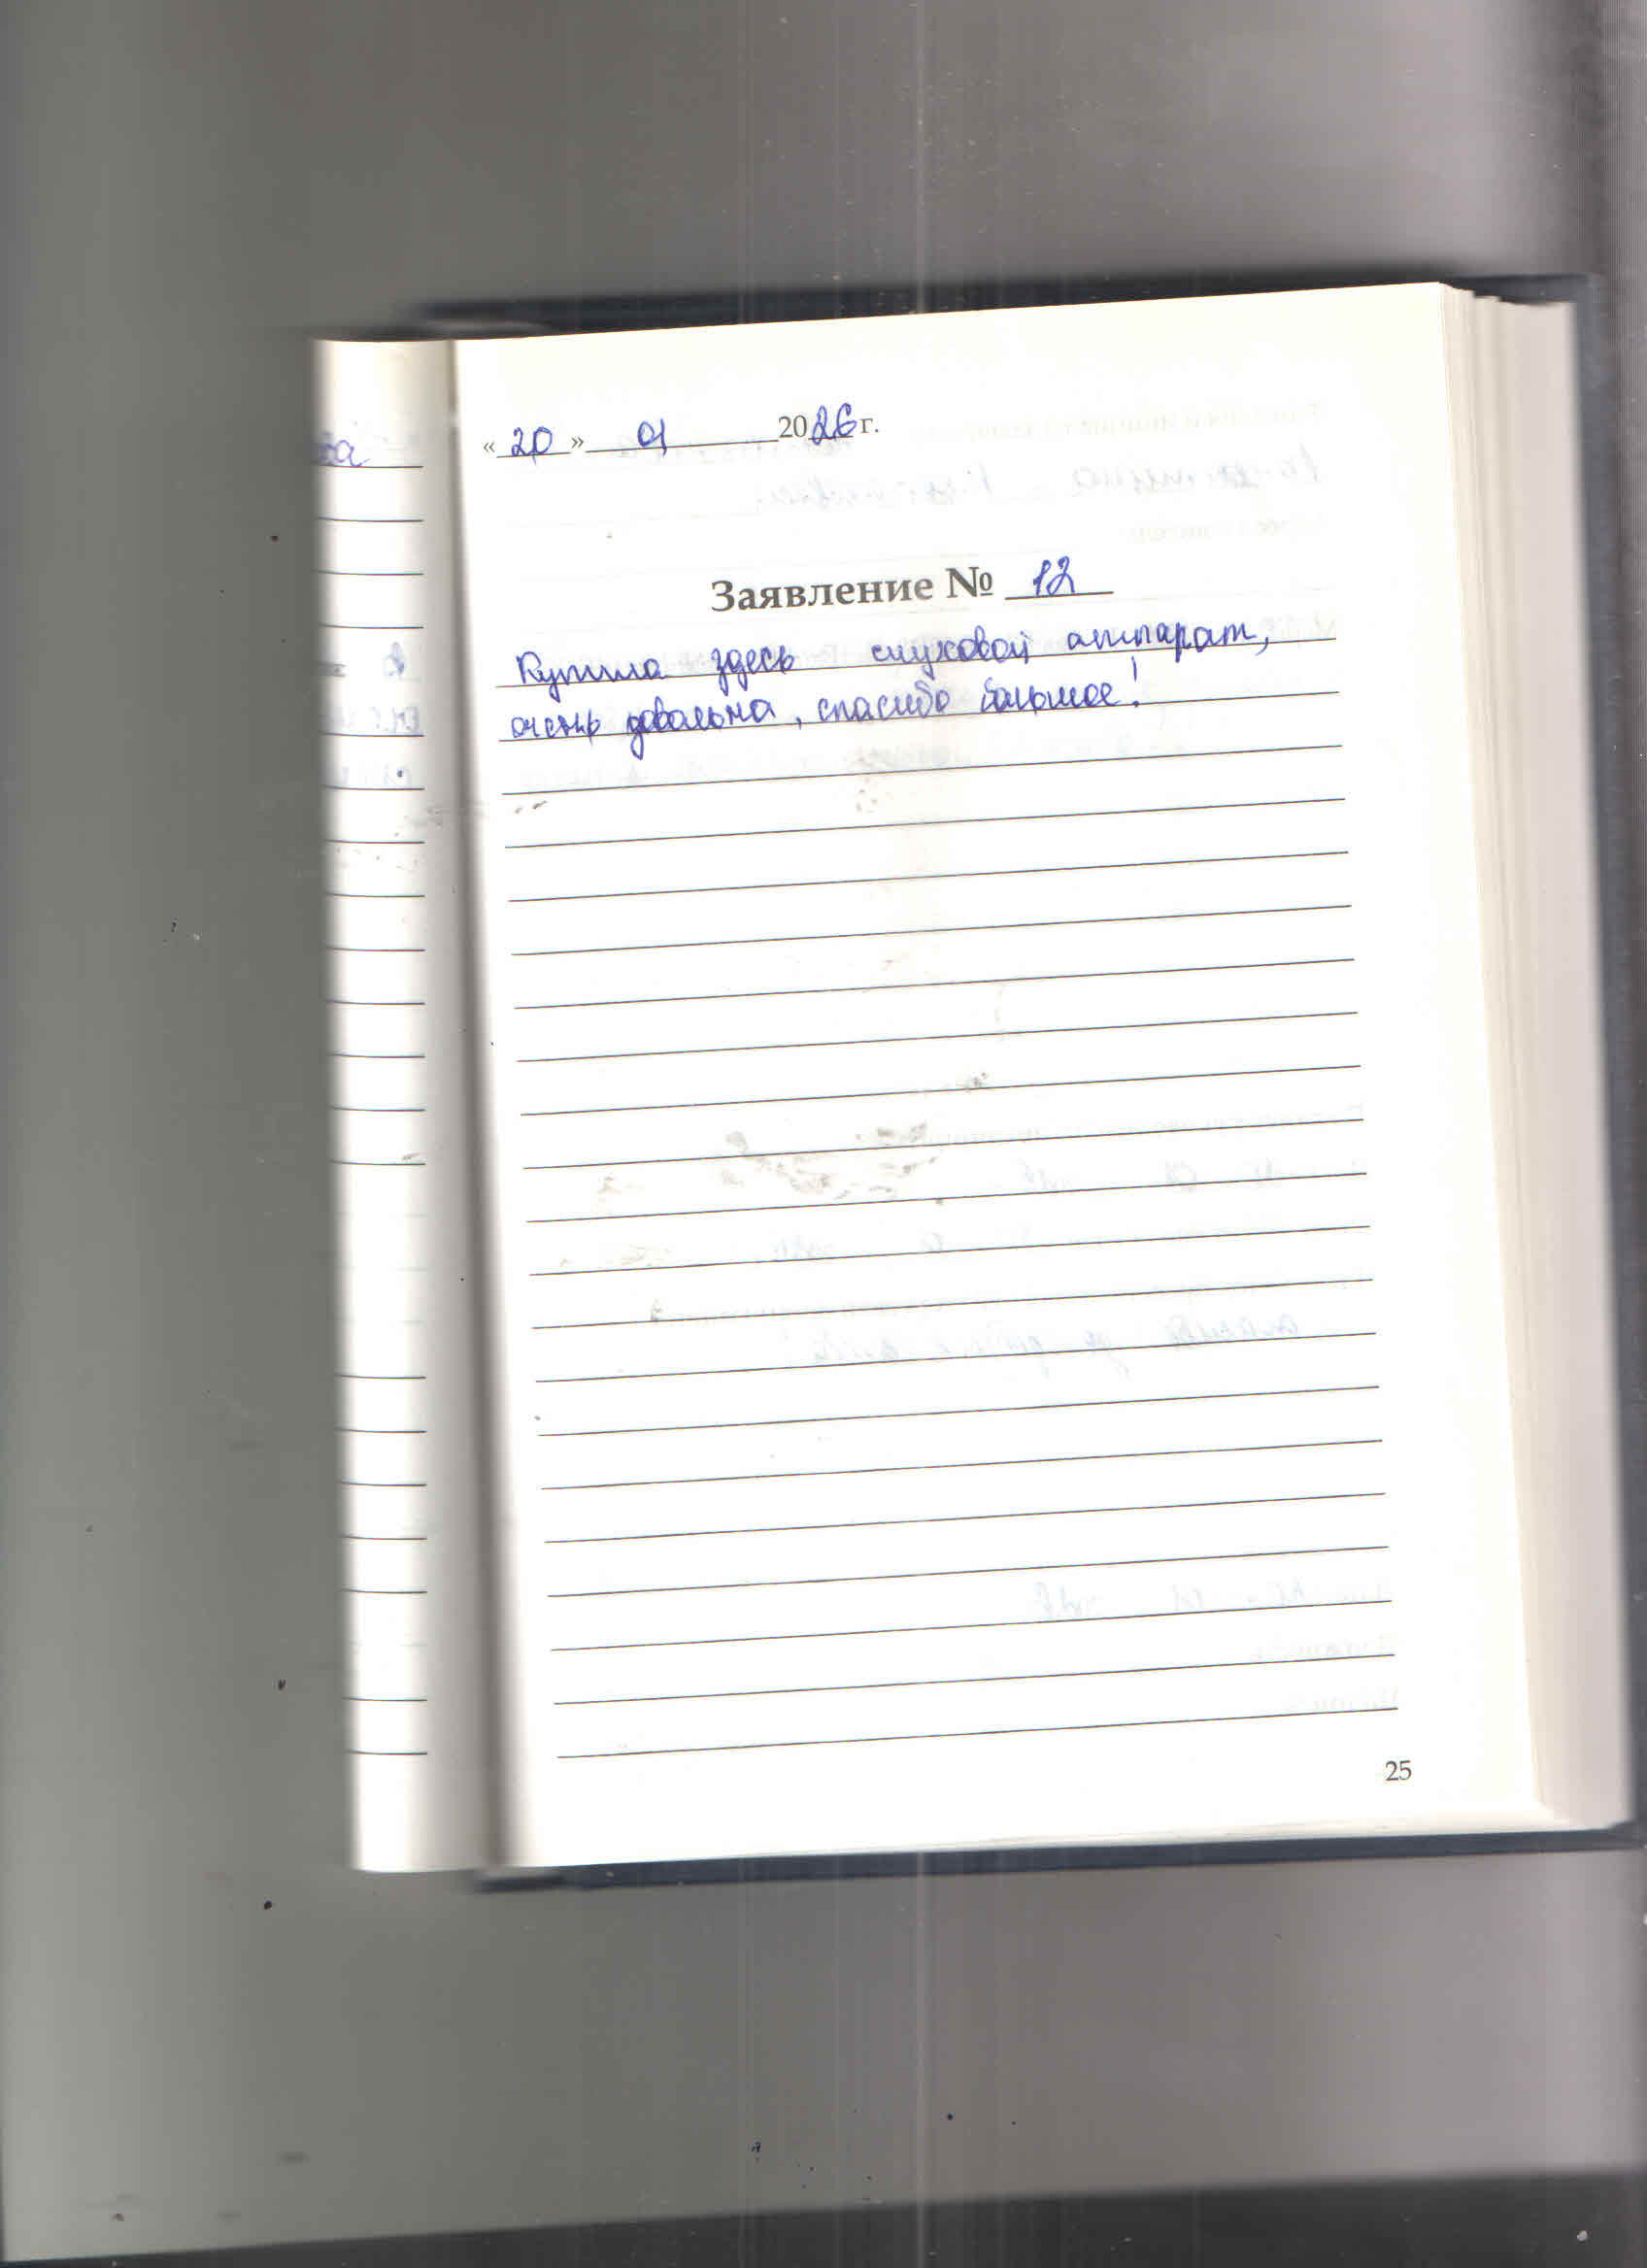 «20» 01 2026 г.
Заявление № 12
Купила здесь слуховой аппарат,
очень довольна, спасибо большое!
25